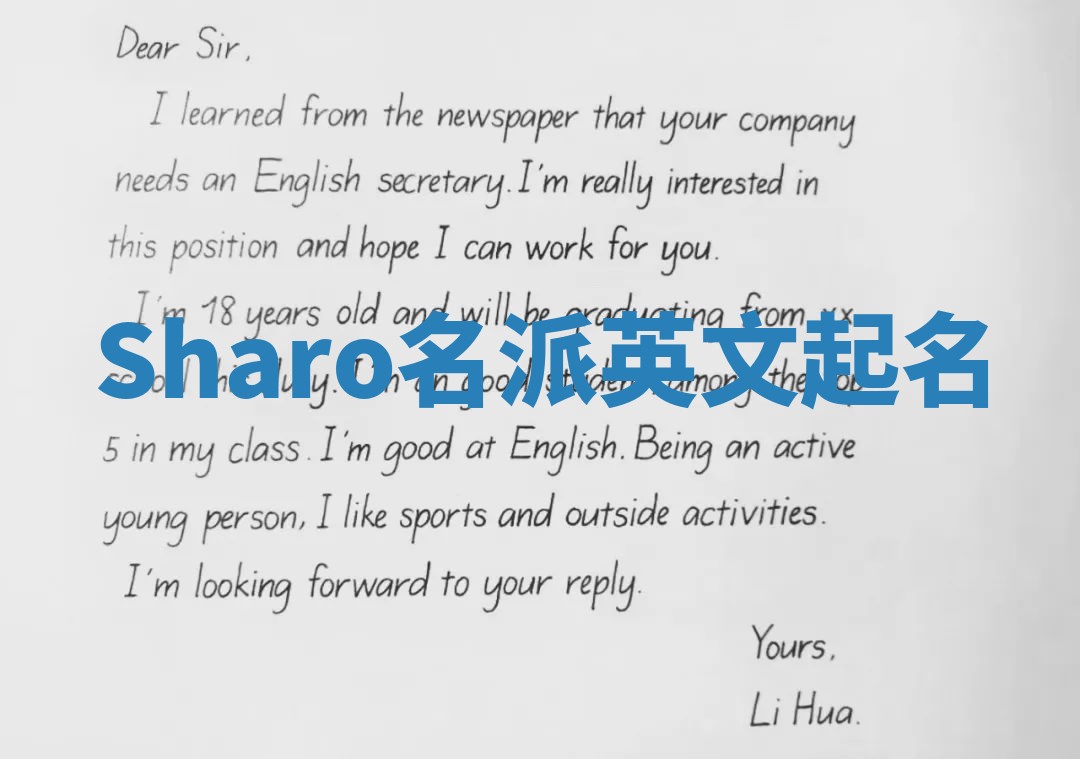 Dear Sir,
I learned from the newspaper that your company
needs an English secretary. I'm really interested in
this position and hope I can work for you.
I'm 18 years old and will be graduating from xx
Sharo名派英文起名
school this July. I'm an good student among the top
5 in my class. I'm good at English. Being an active
young person, I like sports and outside activities.
I'm looking forward to your reply.
Yours,
Li Hua.